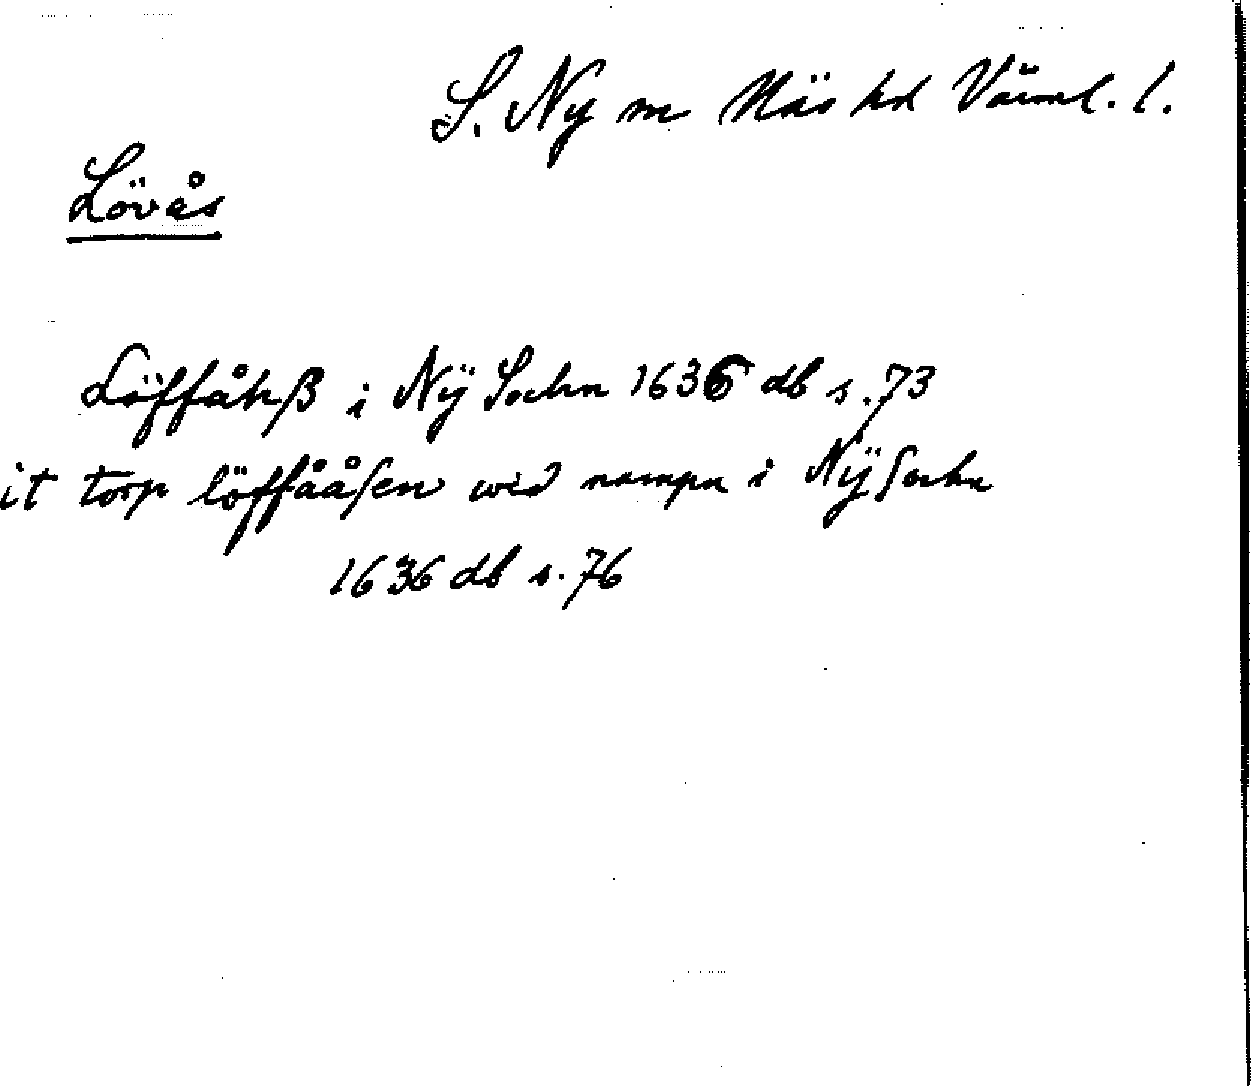 S. Ny sn Näs hd Värml. l.
Lövås
Löffåhß i Nÿ Sochn 1636 db s. 73
it torp löffååsen wid rampn i Nÿ sochn
1636 db s. 76